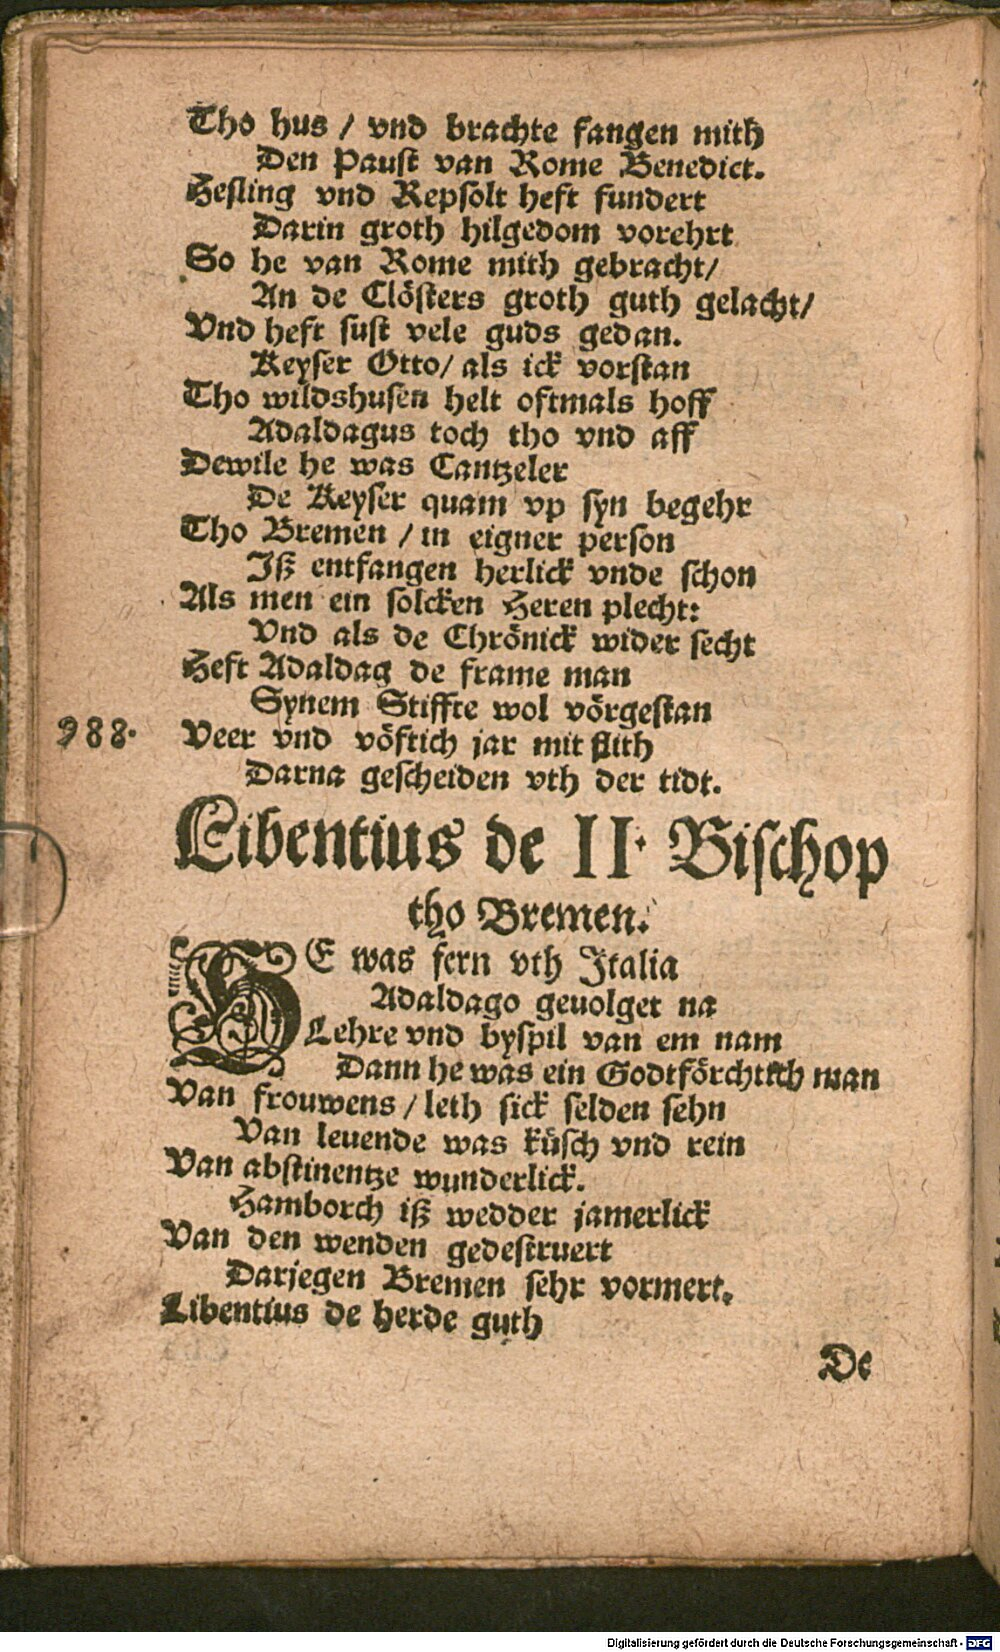 Tho hus / vnd brachte fangen mith
Den Paust van Rome Benedict.
Hesling vnd Repsolt heft fundert
Darin groth hilgedom vorehrt
So he van Rome mith gebracht/
An de Clösters groth guth gelacht/
Vnd heft sust vele guds gedan.
Keyser Otto/ als ick vorstan
Tho wildshusen helt oftmals hoff
Adaldagus toch tho vnd aff
Dewile he was Cantzeler
De Keyser quam vp syn begehr
Tho Bremen / in eigner person
Iß entfangen herlick vnde schon
Als men ein solcken Heren plecht:
Vnd als de Chrönick wider secht
Heft Adaldag de frame man
Synem Stiffte wol vörgestan
988. Veer vnd vöftich jar mit flith
Darna gescheiden vth der tidt.
Libentius de II. Bischop
tho Bremen.
HE was fern vth Italia
Adaldago geuolget na
Lehre vnd byspil van em nam
Dann he was ein Godtförchtich man
Van frouwens / leth sick selden sehn
Van leuende was küsch vnd rein
Van abstinentze wunderlick.
Hamborch iß wedder jamerlick
Van den wenden gedestruert
Darjegen Bremen sehr vormert.
Libentius de herde guth
De
Digitalisierung gefördert durch die Deutsche Forschungsgemeinschaft - DFG